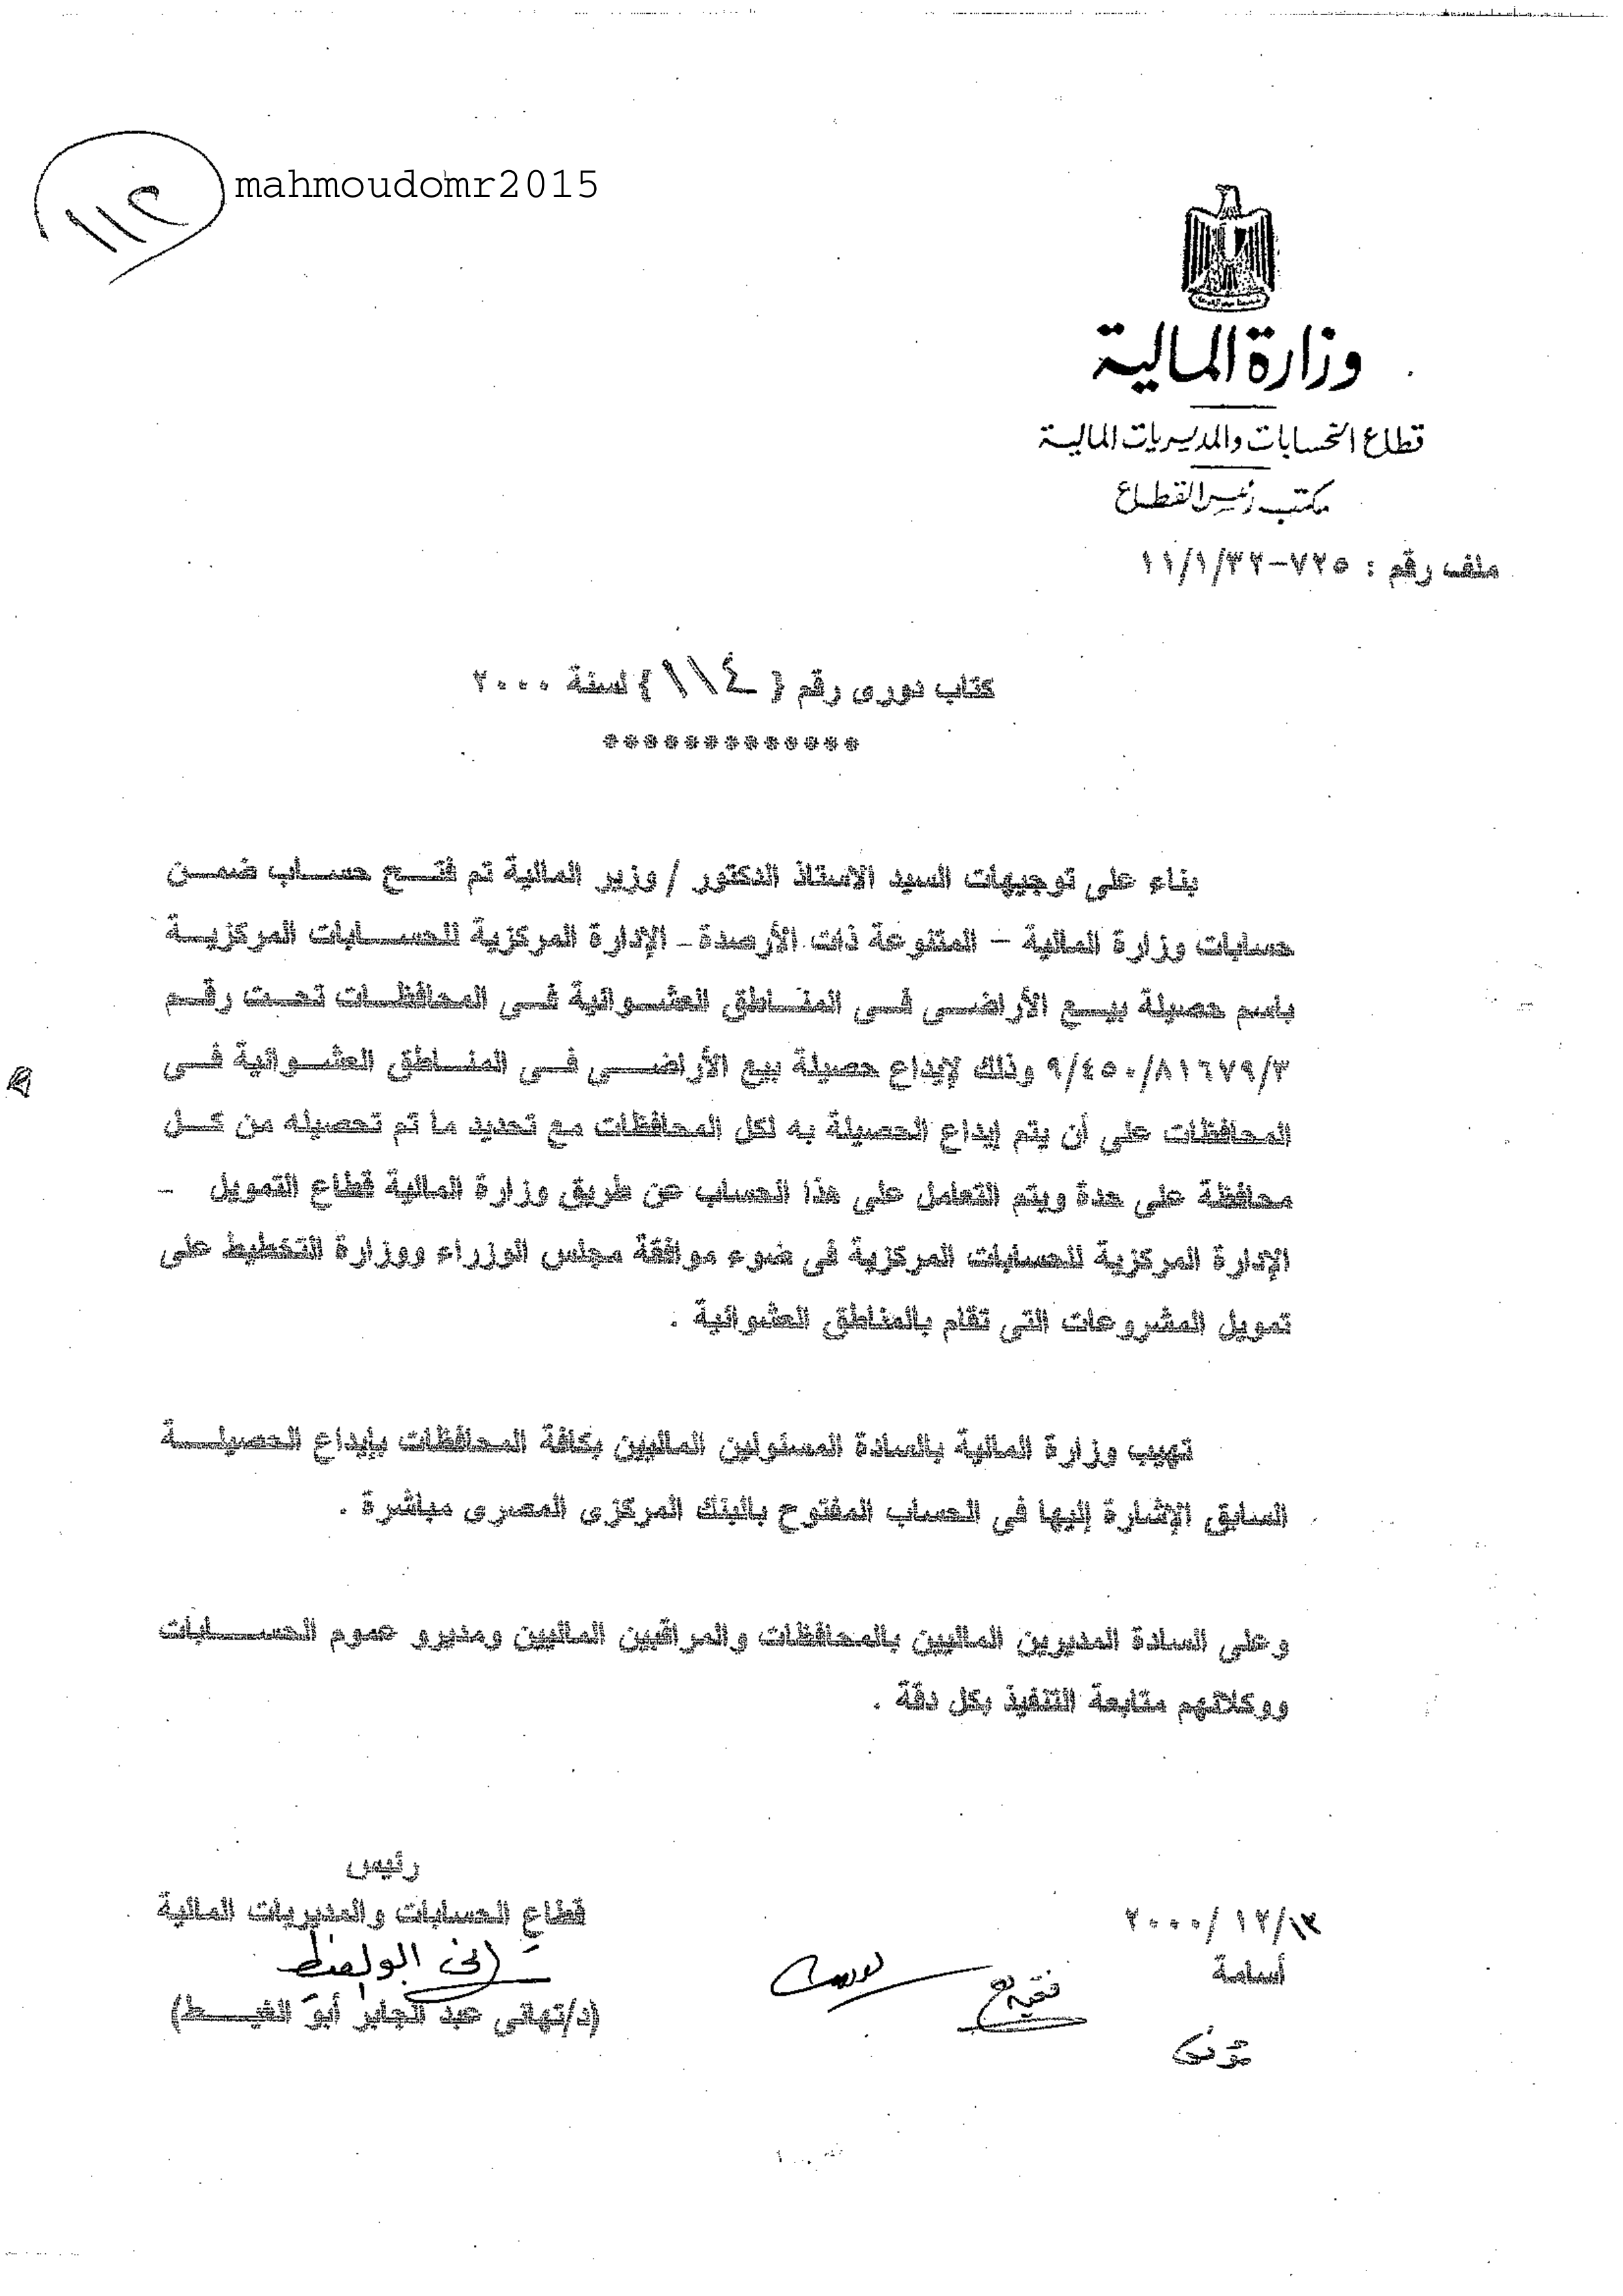 ١١٢
mahmoudomr2015
وزارة المالية
قطاع الحسابات والمديريات المالية
مكتب رئيس القطاع
ملف رقم : ٧٢٥-١١/١/٣٢
كتاب دورى رقم { ١١٤ } لسنة ٢٠٠٠
*************
بناء على توجيهات السيد الاستاذ الدكتور / وزير المالية تم فتح حساب ضمن
حسابات وزارة المالية - المتنوعة ذات الأرصدة - الإدارة المركزية للحسابات المركزية
باسم حصيلة بيع الأراضى فى المناطق العشوائية فى المحافظات تحت رقم
٩/٤٥٠/٨١٦٧٩/٣ وذلك لإيداع حصيلة بيع الأراضى فى المناطق العشوائية فى
المحافظات على أن يتم إيداع الحصيلة به لكل المحافظات مع تحديد ما تم تحصيله من كل
محافظة على حدة ويتم التعامل على هذا الحساب عن طريق وزارة المالية قطاع التمويل -
الإدارة المركزية للحسابات المركزية فى ضوء موافقة مجلس الوزراء ووزارة التخطيط على
تمويل المشروعات التى تقام بالمناطق العشوائية .
تهيب وزارة المالية بالسادة المسئولين الماليين بكافة المحافظات بإيداع الحصيلة
السابق الإشارة إليها فى الحساب المفتوح بالبنك المركزى المصرى مباشرة .
وعلى السادة المديرين الماليين بالمحافظات والمراقبين الماليين ومديرو عموم الحسابات
ووكلائهم متابعة التنفيذ بكل دقة .
رئيس
قطاع الحسابات والمديريات المالية
(د/تهانى عبد الجابر أبو الغيط)
٢٠٠٠/١٢/١٢
أسامة